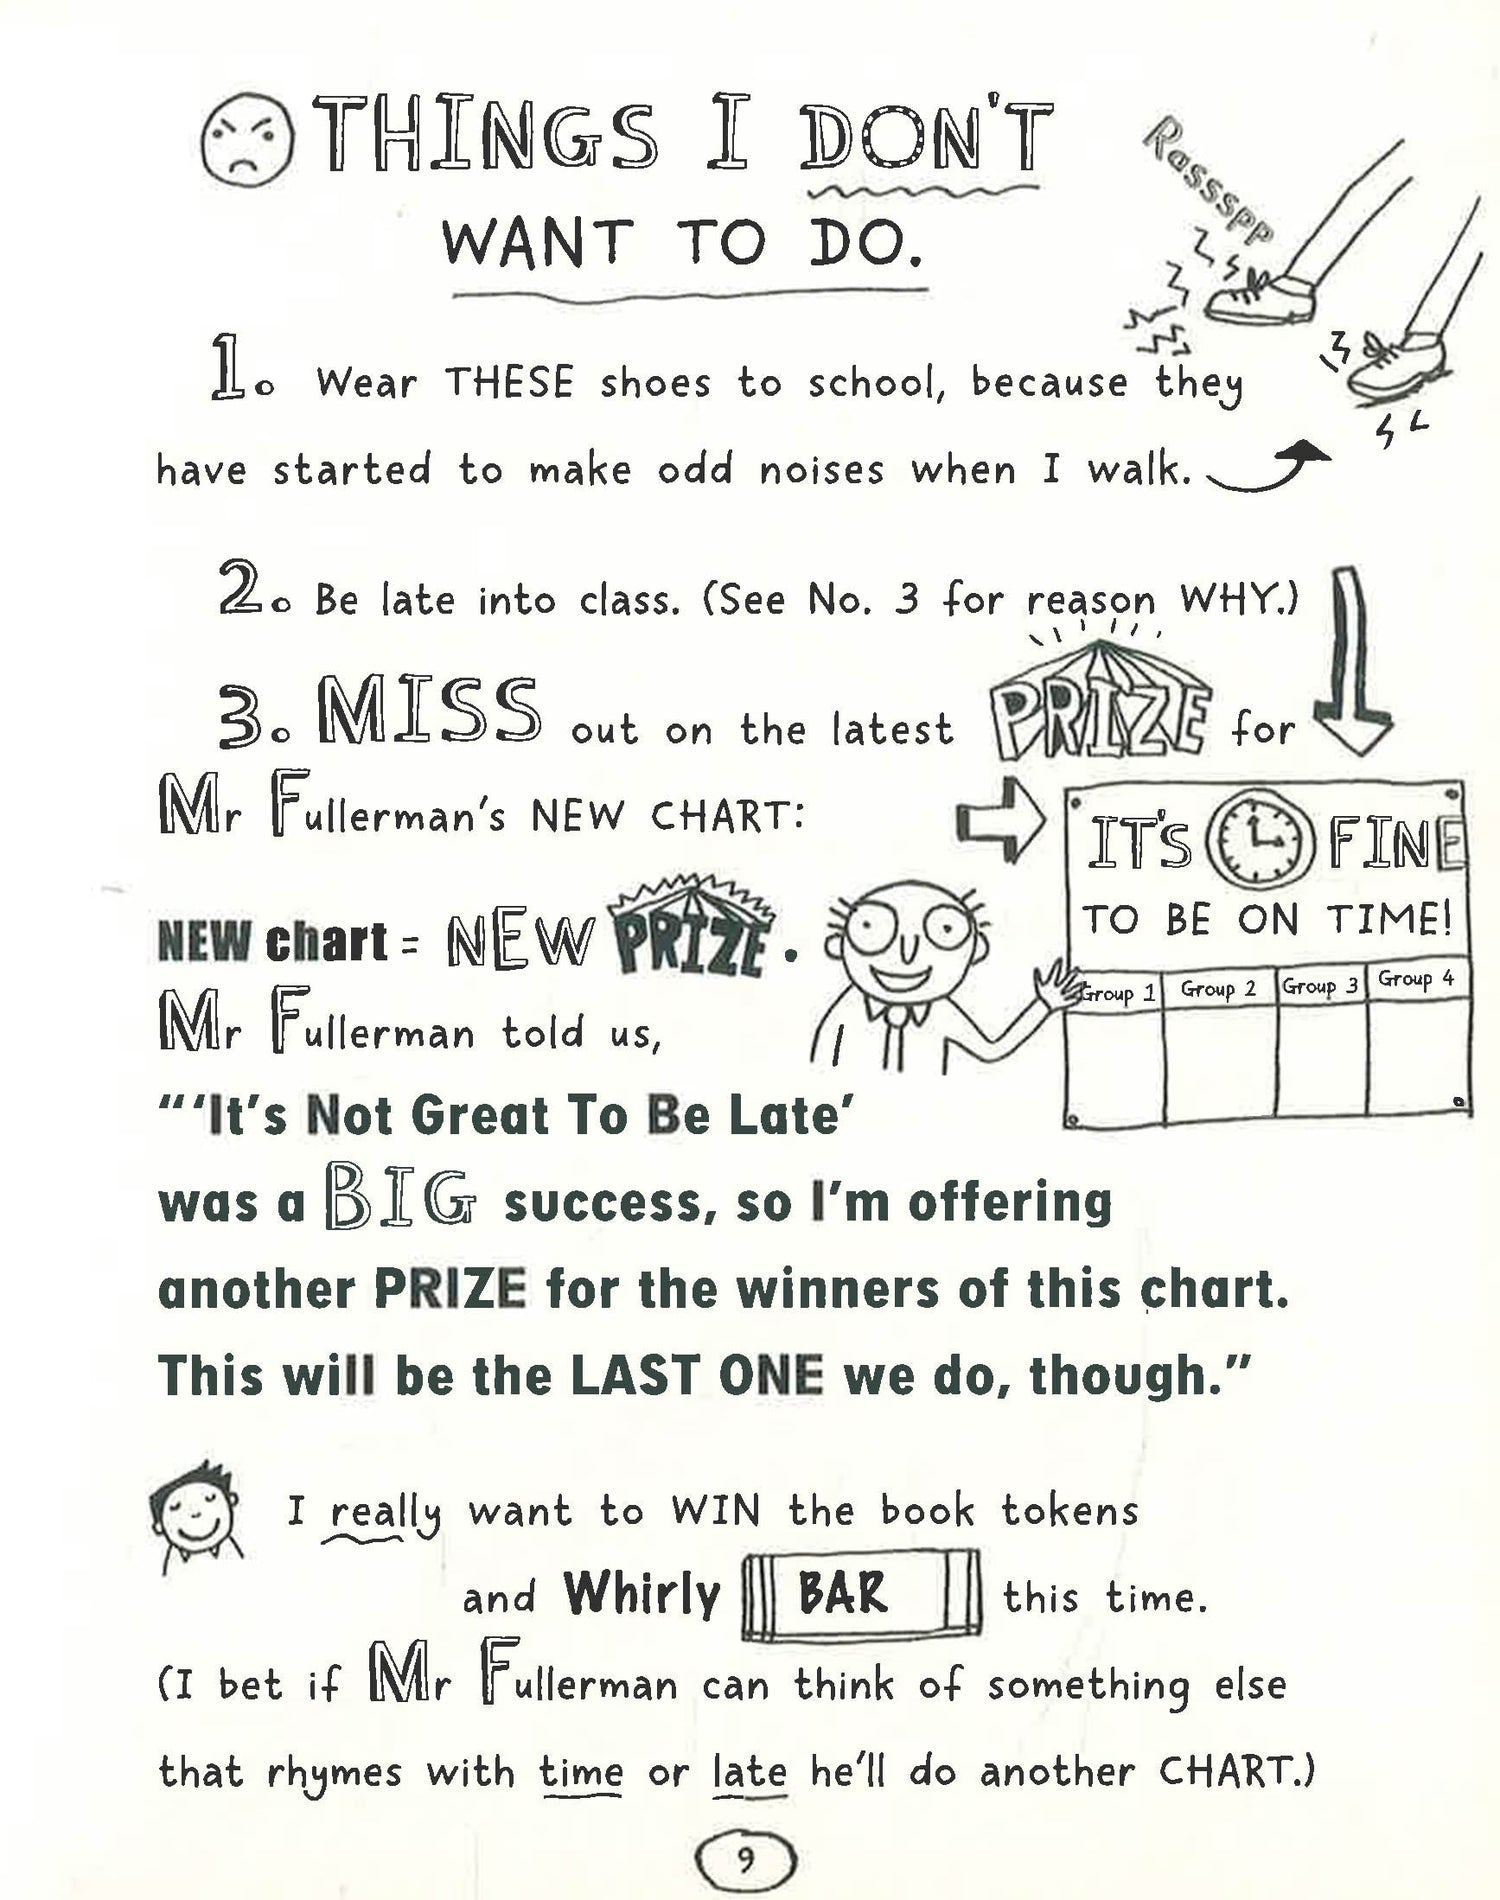 THINGS I DON'T
WANT TO DO.
Rassspp
1. Wear THESE shoes to school, because they
have started to make odd noises when I walk.
2. Be late into class. (See No. 3 for reason WHY.)
3. MISS out on the latest PRIZE for
Mr Fullerman's NEW CHART:
IT'S FINE
TO BE ON TIME!
Group 1 Group 2 Group 3 Group 4
NEW chart = NEW PRIZE.
Mr Fullerman told us,
"'It's Not Great To Be Late'
was a BIG success, so I'm offering
another PRIZE for the winners of this chart.
This will be the LAST ONE we do, though."
I really want to WIN the book tokens
and Whirly BAR this time.
(I bet if Mr Fullerman can think of something else
that rhymes with time or late he'll do another CHART.)
9